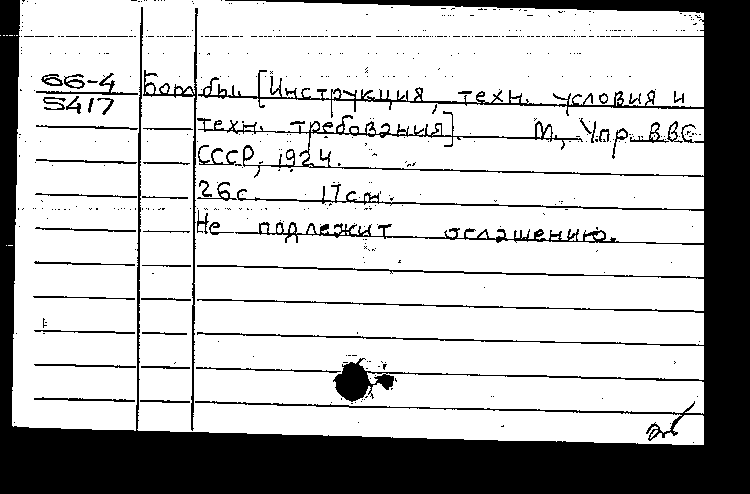 66-4
5417
Бомбы. [Инструкция, техн. условия и
техн. требования]. М., Упр. ВВС
СССР, 1924.
26с. 17см.
Не подлежит оглашению.